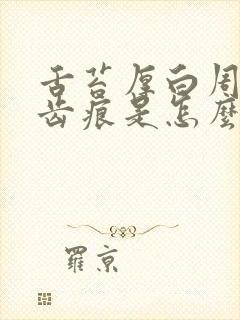 舌苔厚白周
齿痕是怎麼
羅京